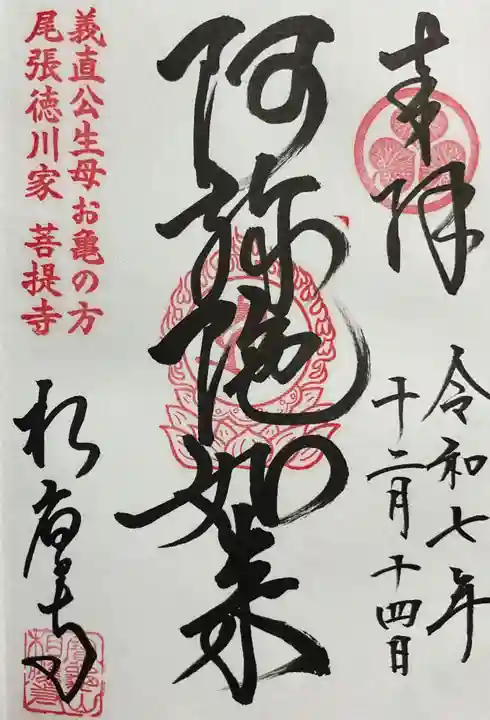 奉拝
令和七年
十二月十四日
阿弥陀如来
義直公生母お亀の方
尾張徳川家 菩提寺
相應寺